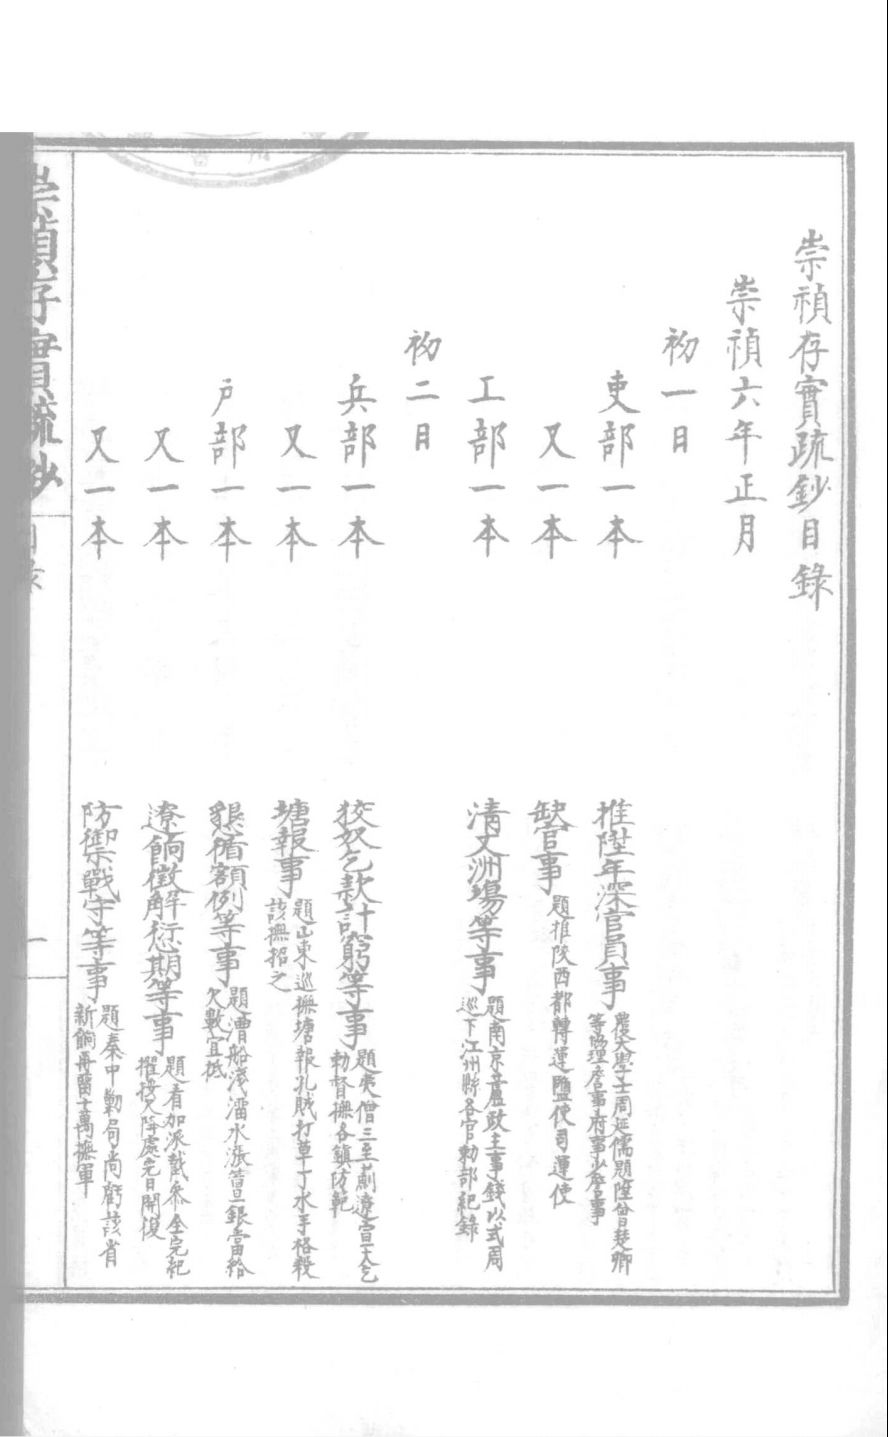 崇禎存實疏鈔目錄
崇禎六年正月
初一日
吏部一本 推陞年深官員事 大學士周延儒題陞曾楚卿
等協理詹事府事少詹事
又一本 缺官事 題推陝西都轉運鹽使司運使
工部一本 清丈洲場等事 題南京蘆政主事錢以式周
巡下江州縣各官勅部紀錄
初二日
兵部一本 狡奴乞款計窮等事 題夷僧三至薊遼宣大乞
勅督撫各鎮防範
又一本 塘報事 題山東巡撫塘報孔賊打草丁水手格殺
該撫招之
戶部一本 懇循額例等事 題漕船淺溜水漲 銀當給
欠數宜抵
又一本 遼餉徵解愆期等事 題看加派戴參全完紀
擢 降處完日開復
又一本 防禦戰守等事 題秦中勦局尚虧該省
新餉再留十萬撫軍
崇禎存實疏鈔 目錄 一